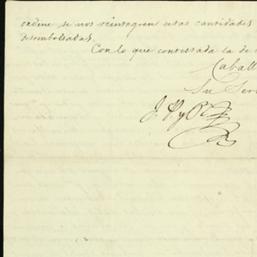 ordene se nos reintegren estas cantidades
desembolsadas.
Con lo que contestada la de
Caball
Su Ser
J. P. y P.